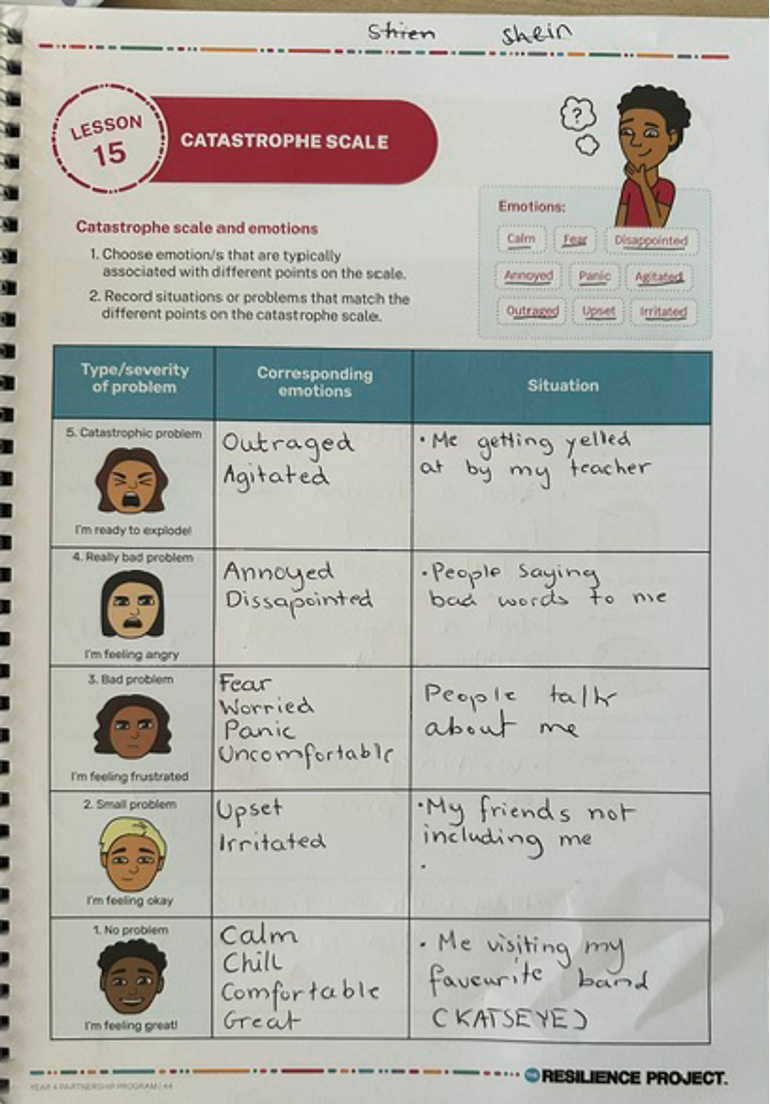 Shien shein
LESSON
15
CATASTROPHE SCALE
?
Catastrophe scale and emotions
1. Choose emotion/s that are typically
associated with different points on the scale.
2. Record situations or problems that match the
different points on the catastrophe scale.
Emotions:
Calm Fear Disappointed
Annoyed Panic Agitated
Outraged Upset Irritated
Type/severity
of problem
Corresponding
emotions
Situation
5. Catastrophic problem
I'm ready to explode!
Outraged
Agitated
• Me getting yelled
at by my teacher
4. Really bad problem
I'm feeling angry
Annoyed
Dissapointed
• People saying
bad words to me
3. Bad problem
I'm feeling frustrated
Fear
Worried
Panic
Uncomfortable
People talk
about me
2. Small problem
I'm feeling okay
Upset
Irritated
• My friends not
including me
•
1. No problem
I'm feeling great!
Calm
Chill
Comfortable
Great
• Me visiting my
faveurite band
(KATSEYE)
YEAR 4 PARTNERSHIP PROGRAM | 44
THE RESILIENCE PROJECT.